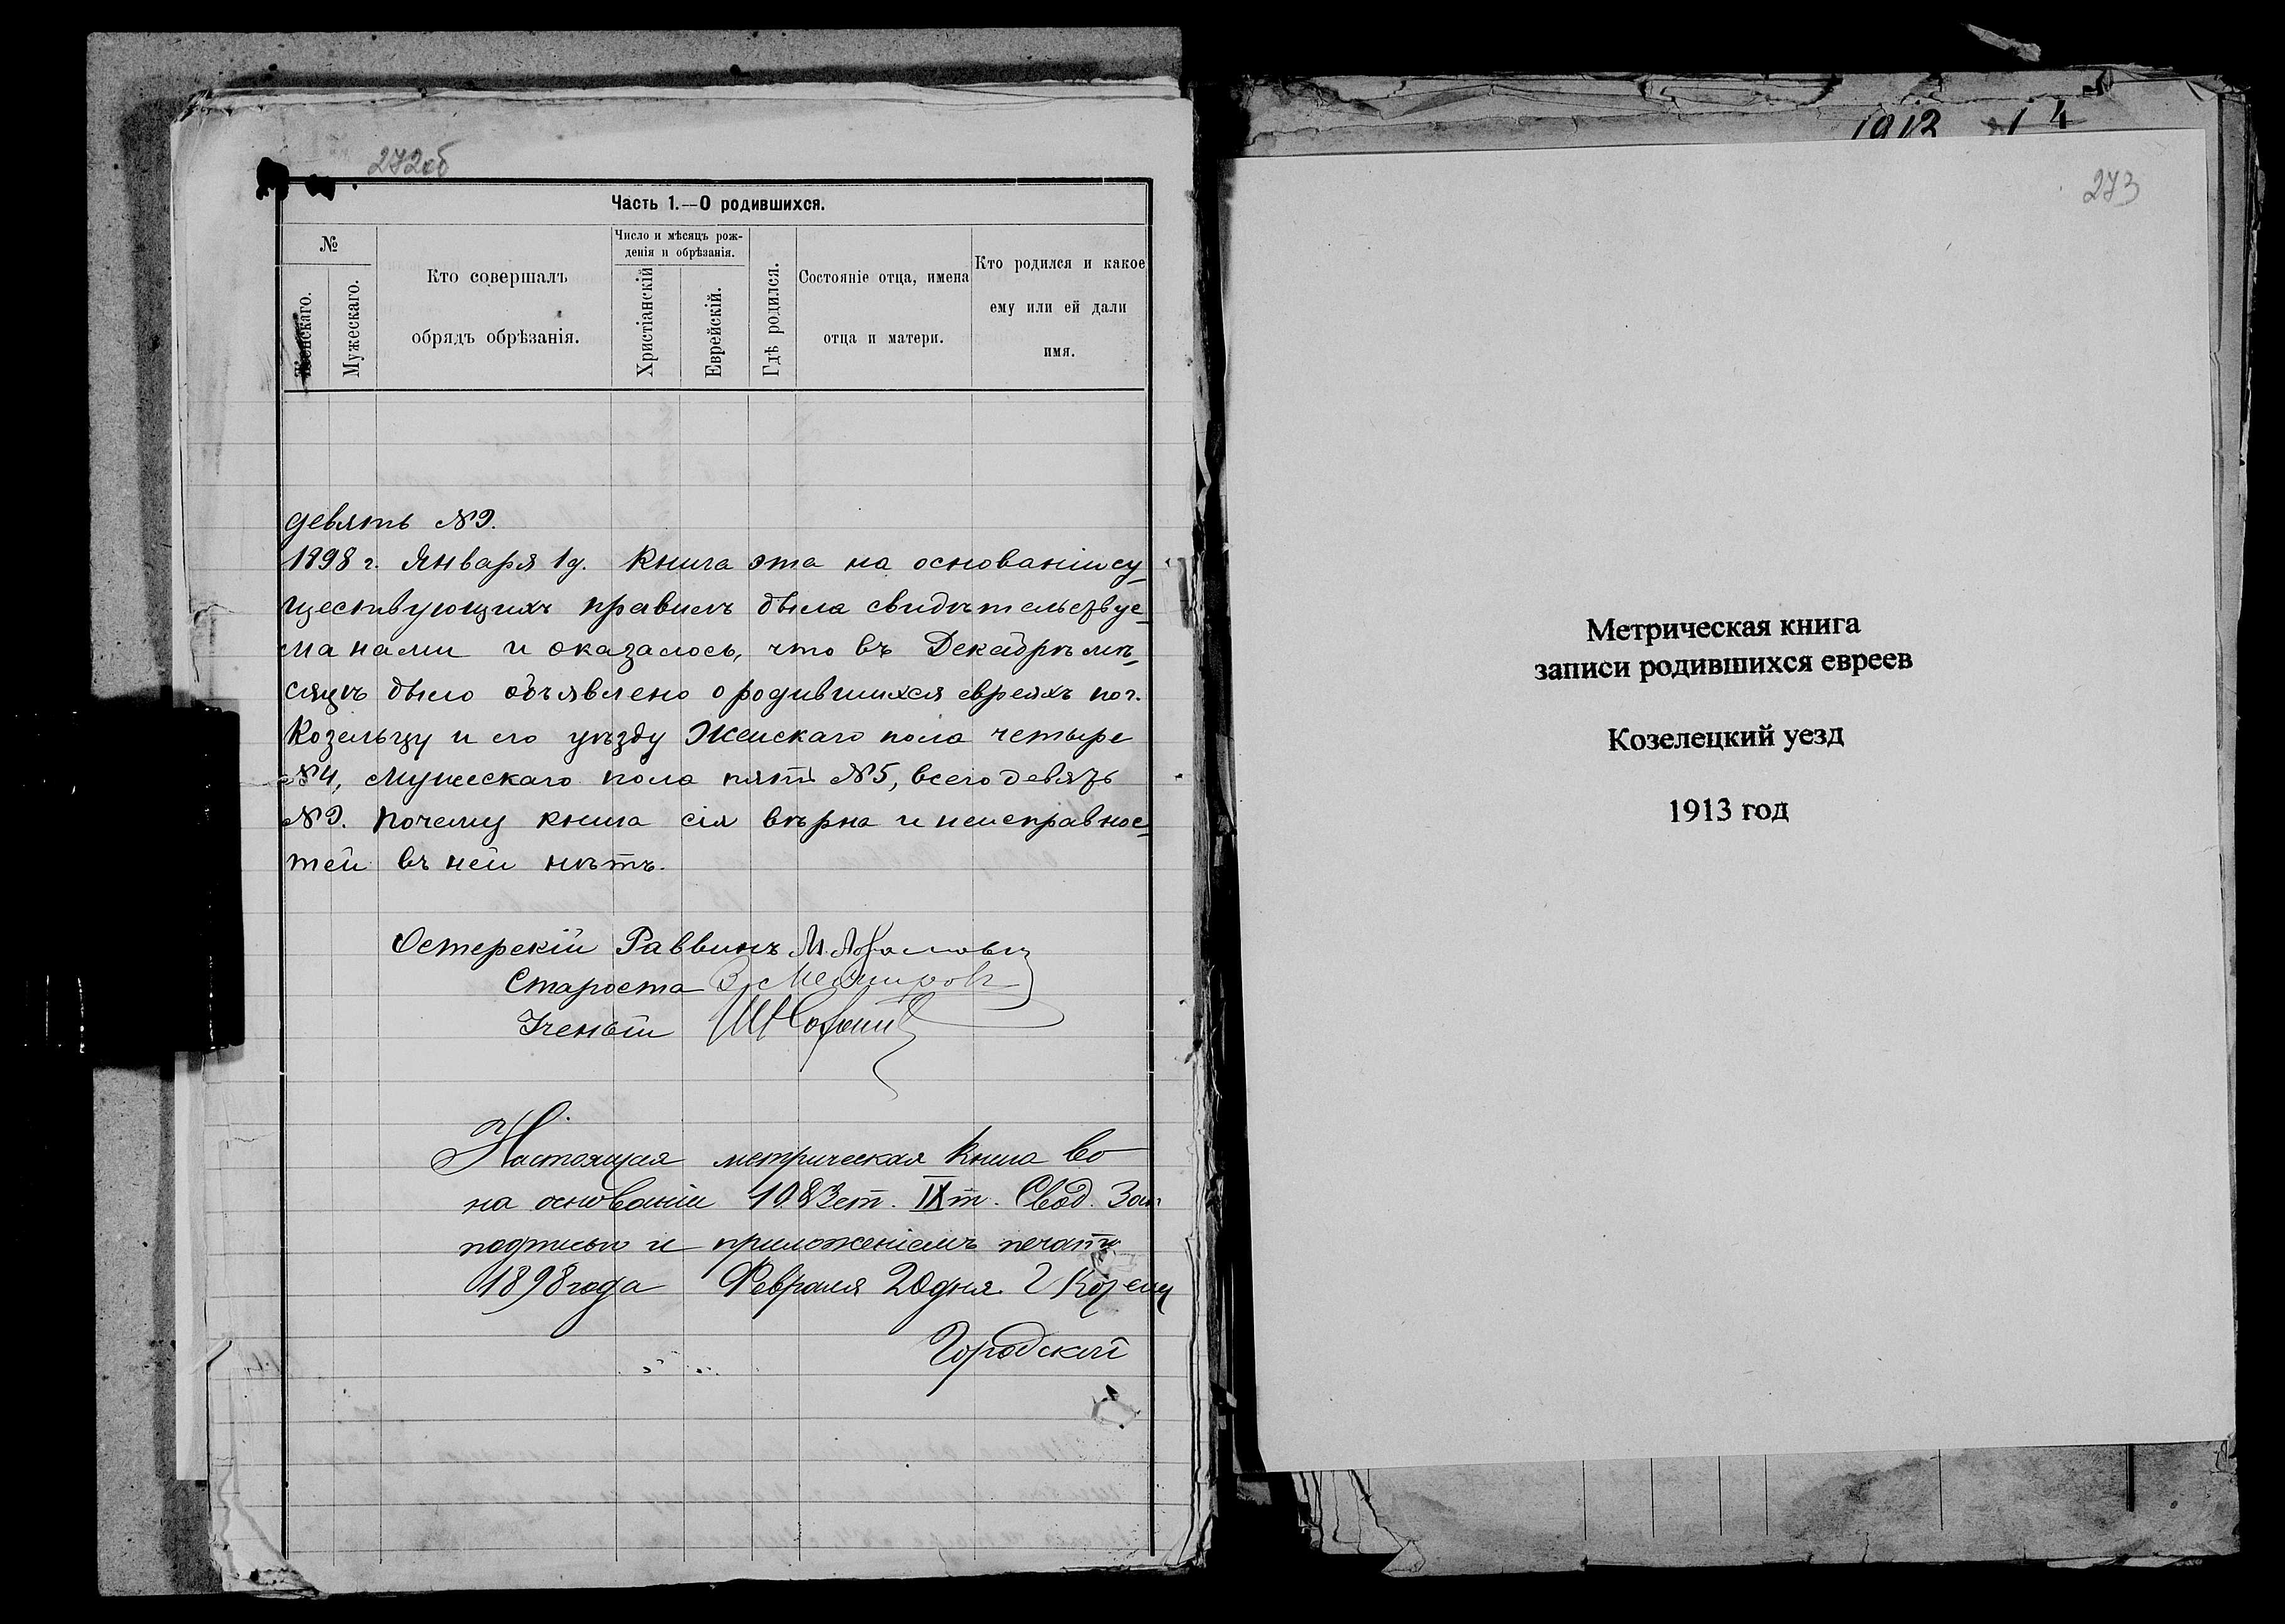 272об
Часть 1.—О родившихся.
№
Женскаго.
Мужескаго.
Кто совершалъ
обрядъ обрѣзанія.
Число и мѣсяцъ рож-
денія и обрѣзанія.
Христіанскій
Еврейскій.
Гдѣ родился.
Состояніе отца, имена
отца и матери.
Кто родился и какое
ему или ей дали
имя.
девять №9.
1898 г. Января 1д. Книга эта на основаніи су-
ществующихъ правилъ была свидѣтельствуе-
ма нами и оказалось, что въ Декабрѣ мѣ-
сяцѣ было объявлено о родившихся евреяхъ по г.
Козельцу и его уѣзду Женскаго пола четыре
№4, Мужескаго пола пять №5, всего девять
№9. Почему книга сія вѣрна и неисправнос-
тей въ ней нѣтъ.
Остерскій Раввинъ М.
Староста
Ученый
Настоящая метрическая книга во
на основаніи 1083 ст. IX т. Свод. Зак
подписью и приложеніемъ печати
1898 года Февраля 20 дня. Г Козелец
Городской
1912 14
273
Метрическая книга
записи родившихся евреев
Козелецкий уезд
1913 год